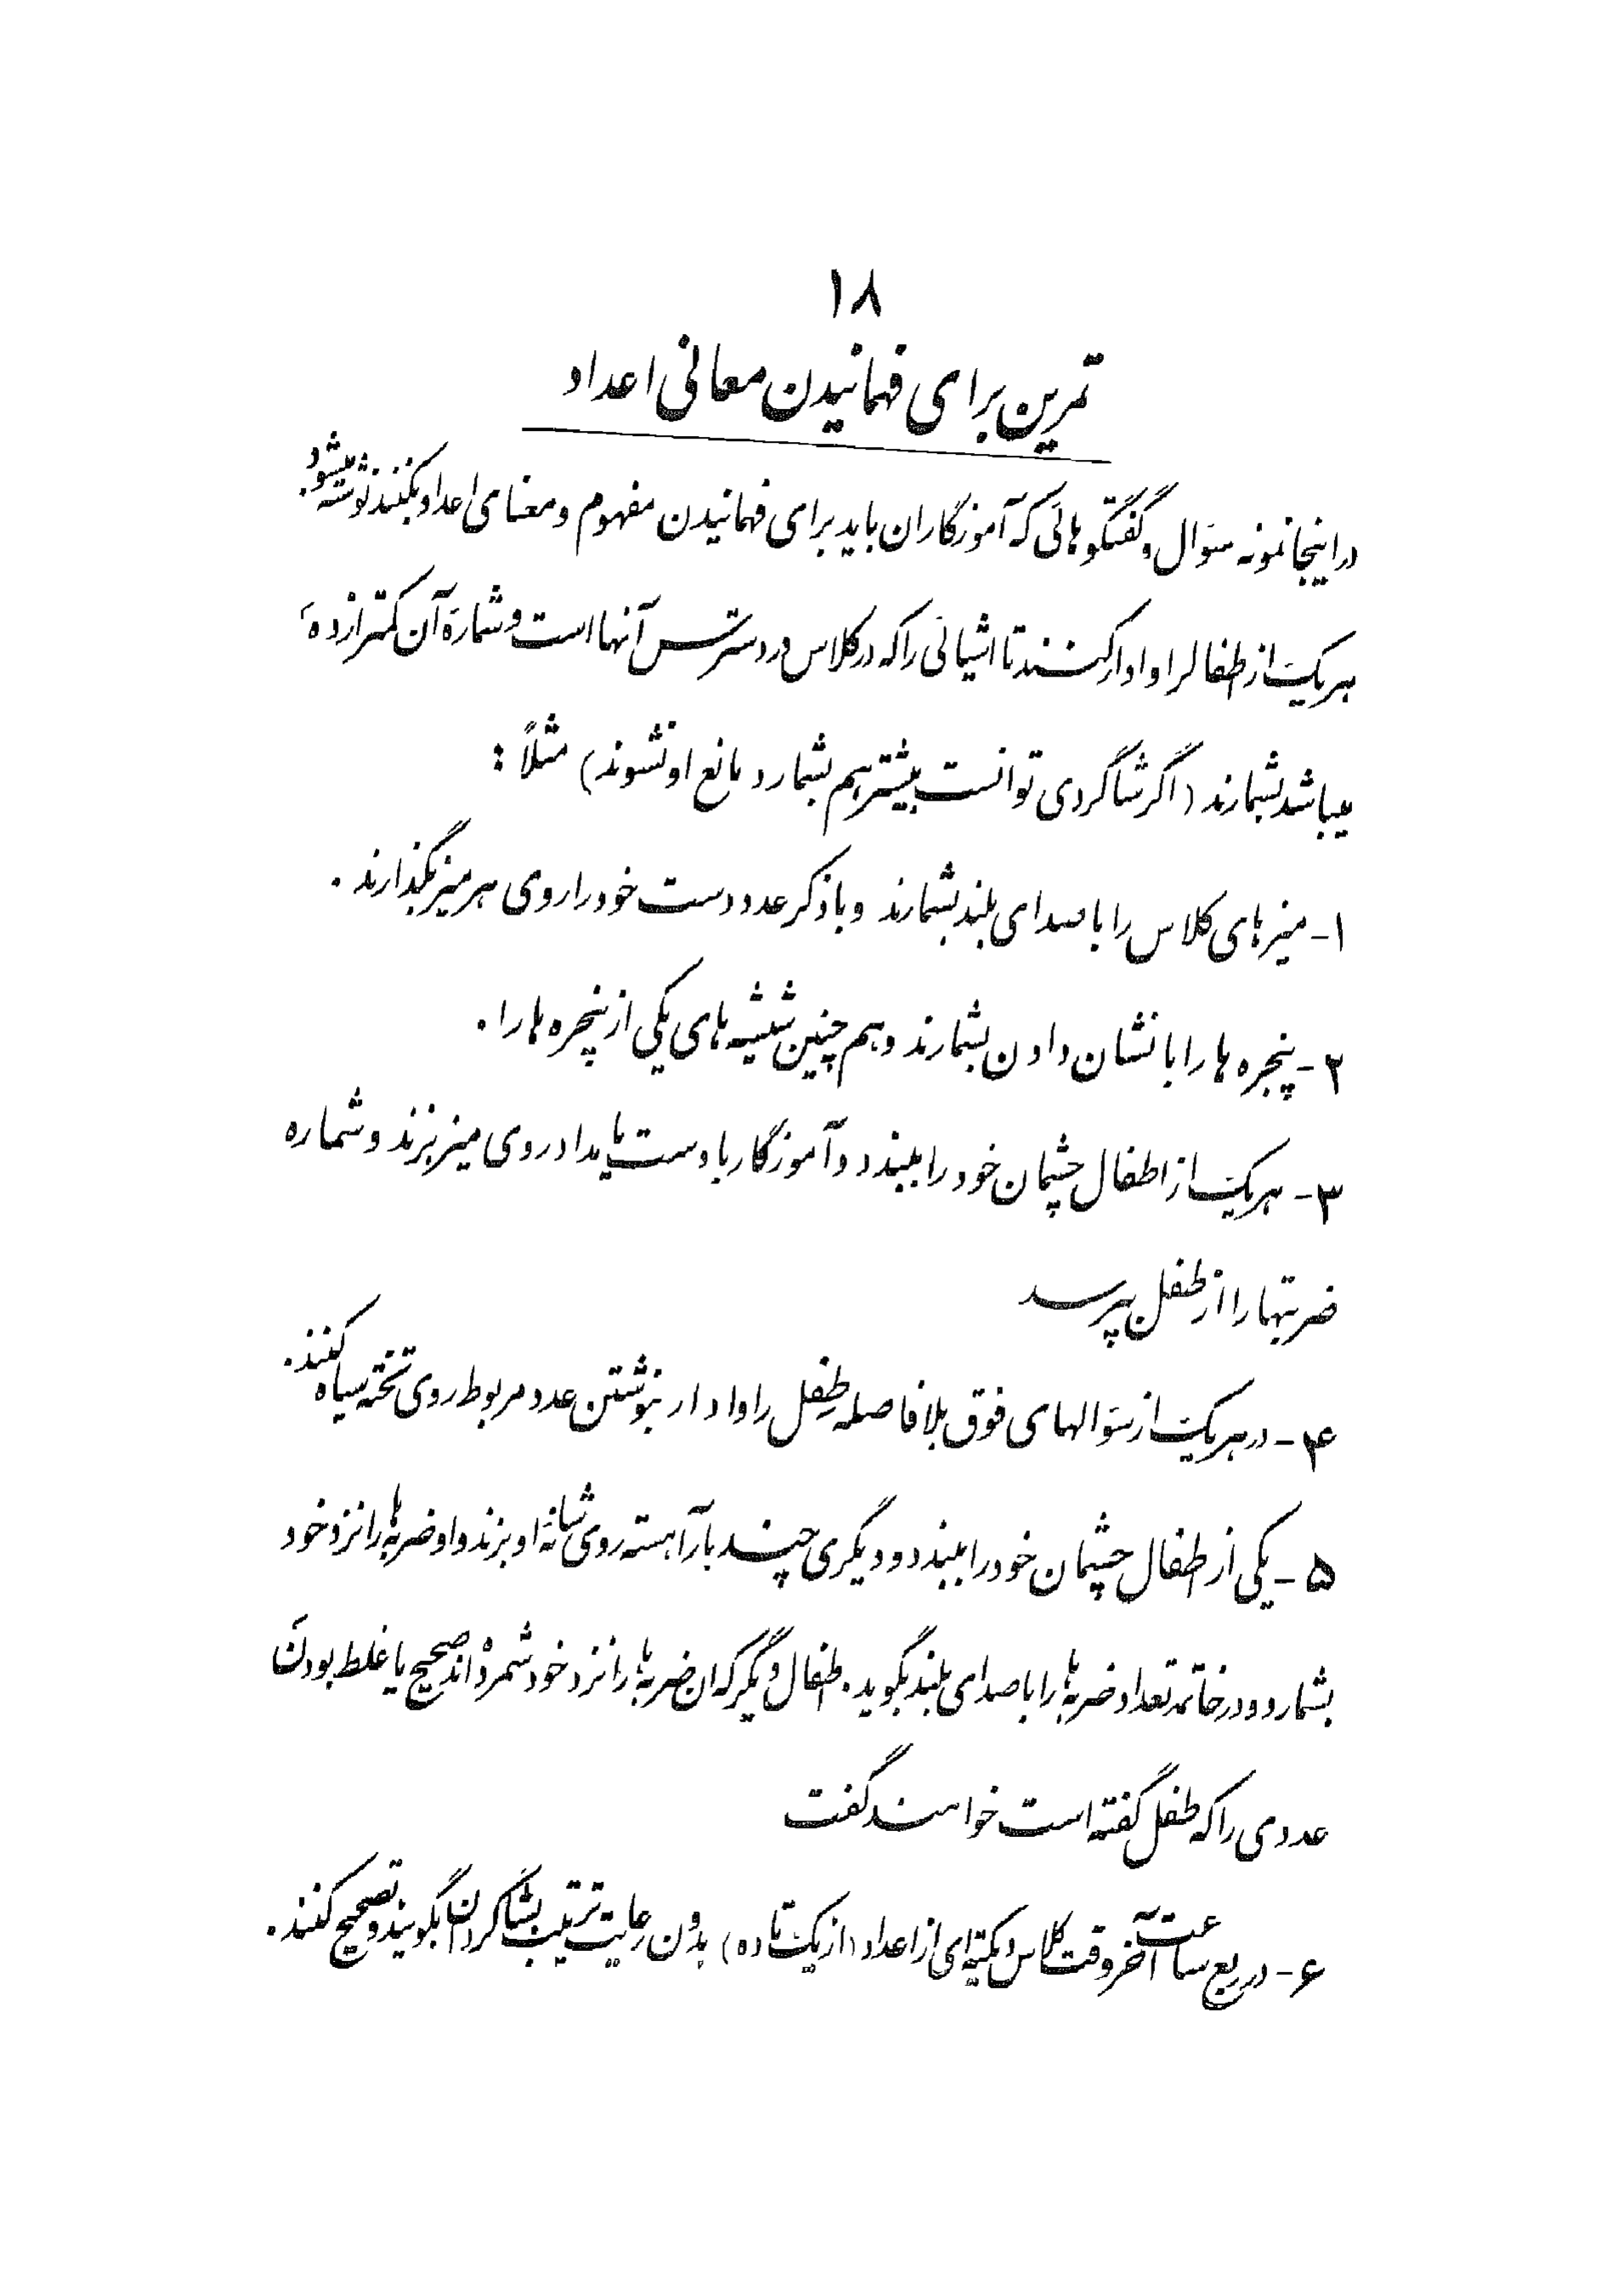 ۱۸
تمرین برای فهمانیدن معانی اعداد
در اینجا نمونه سؤال و گفتگوهائی که آموزگاران باید برای فهمانیدن مفهوم و معنای اعداد بکنند نوشته میشود.
هر یک از اطفال را وادار کنند تا اشیائی را که در کلاس در دسترس آنها است و شمارهٔ آن کمتر از ده
میباشد بشمارند (اگر شاگردی توانست بیشتر هم بشمارد مانع او نشوند) مثلاً :
۱- میزهای کلاس را با صدای بلند بشمارند و با ذکر عدد دست خود را روی هر میز بگذارند .
۲- پنجره ها را با نشان دادن بشمارند و هم چنین شیشه های یکی از پنجره ها را .
۳- هر یک از اطفال چشمان خود را ببندد و آموزگار با دست یا مداد روی میز بزند و شماره
ضربتها را از طفل بپرسد
۴- در هر یک از سؤالهای فوق بلافاصله طفل را وادار بنوشتن عدد مربوط روی تخته سیاه کنند.
۵- یکی از اطفال چشمان خود را ببندد و دیگری چند بار آهسته روی شانهٔ او بزند و او ضربه ها را نزد خود
بشمارد و در خاتمه تعداد ضربه ها را با صدای بلند بگوید . اطفال دیگر که ان ضربه ها را نزد خود شمرده اند صحیح یا غلط بودن
عددی را که طفل گفته است خواهند گفت
۶- در ربع ساعت آخر وقت کلاس دیکته ای از اعداد (از یک تا ده) بدون رعایت ترتیب بشاگردان بگویند و تصحیح کنند .